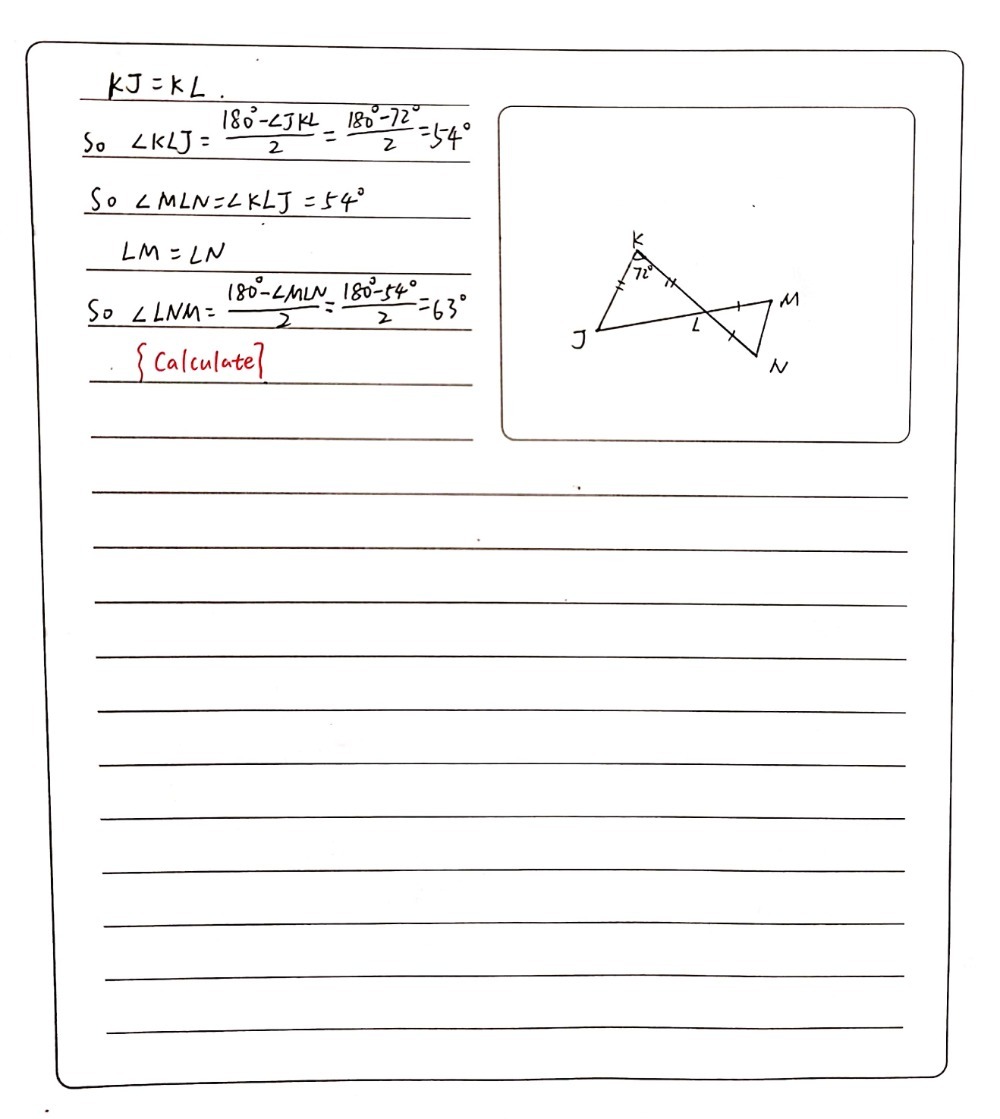 KJ = KL.
So ∠KLJ = (180°-∠JKL)/2 = (180°-72°)/2 = 54°
So ∠MLN = ∠KLJ = 54°
LM = LN
So ∠LNM = (180°-∠MLN)/2 = (180°-54°)/2 = 63°
{Calculate}
K
72°
M
L
J
N